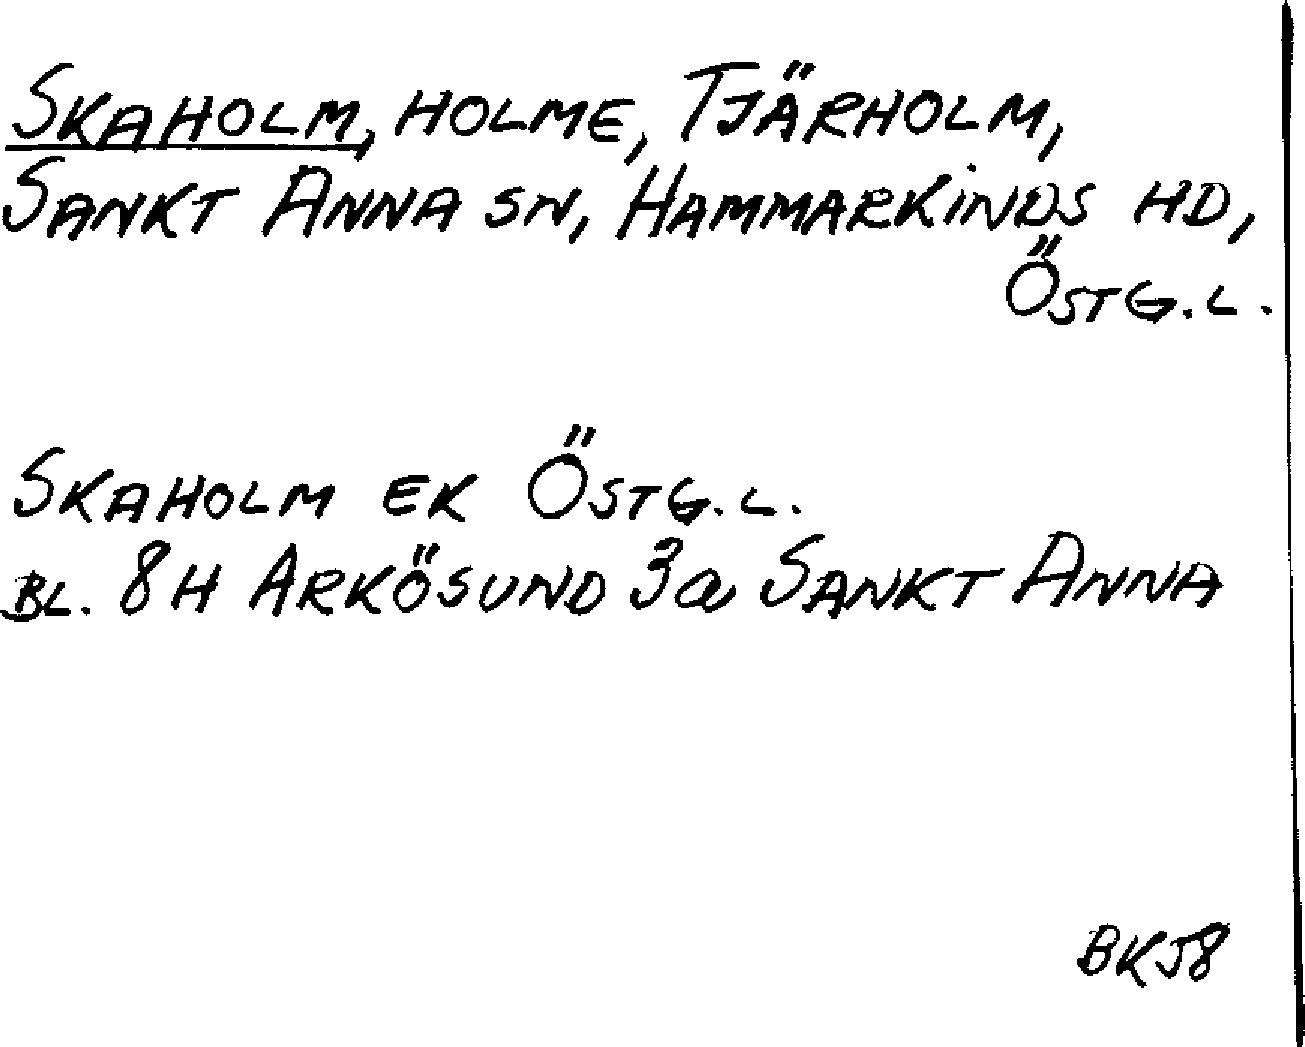 SKAHOLM, HOLME, TJÄRHOLM,
SANKT ANNA SN, HAMMARKINDS HD,
ÖSTG.L.
SKAHOLM EK ÖSTG.L.
BL. 8H ARKÖSUND 3a SANKT ANNA
BK58